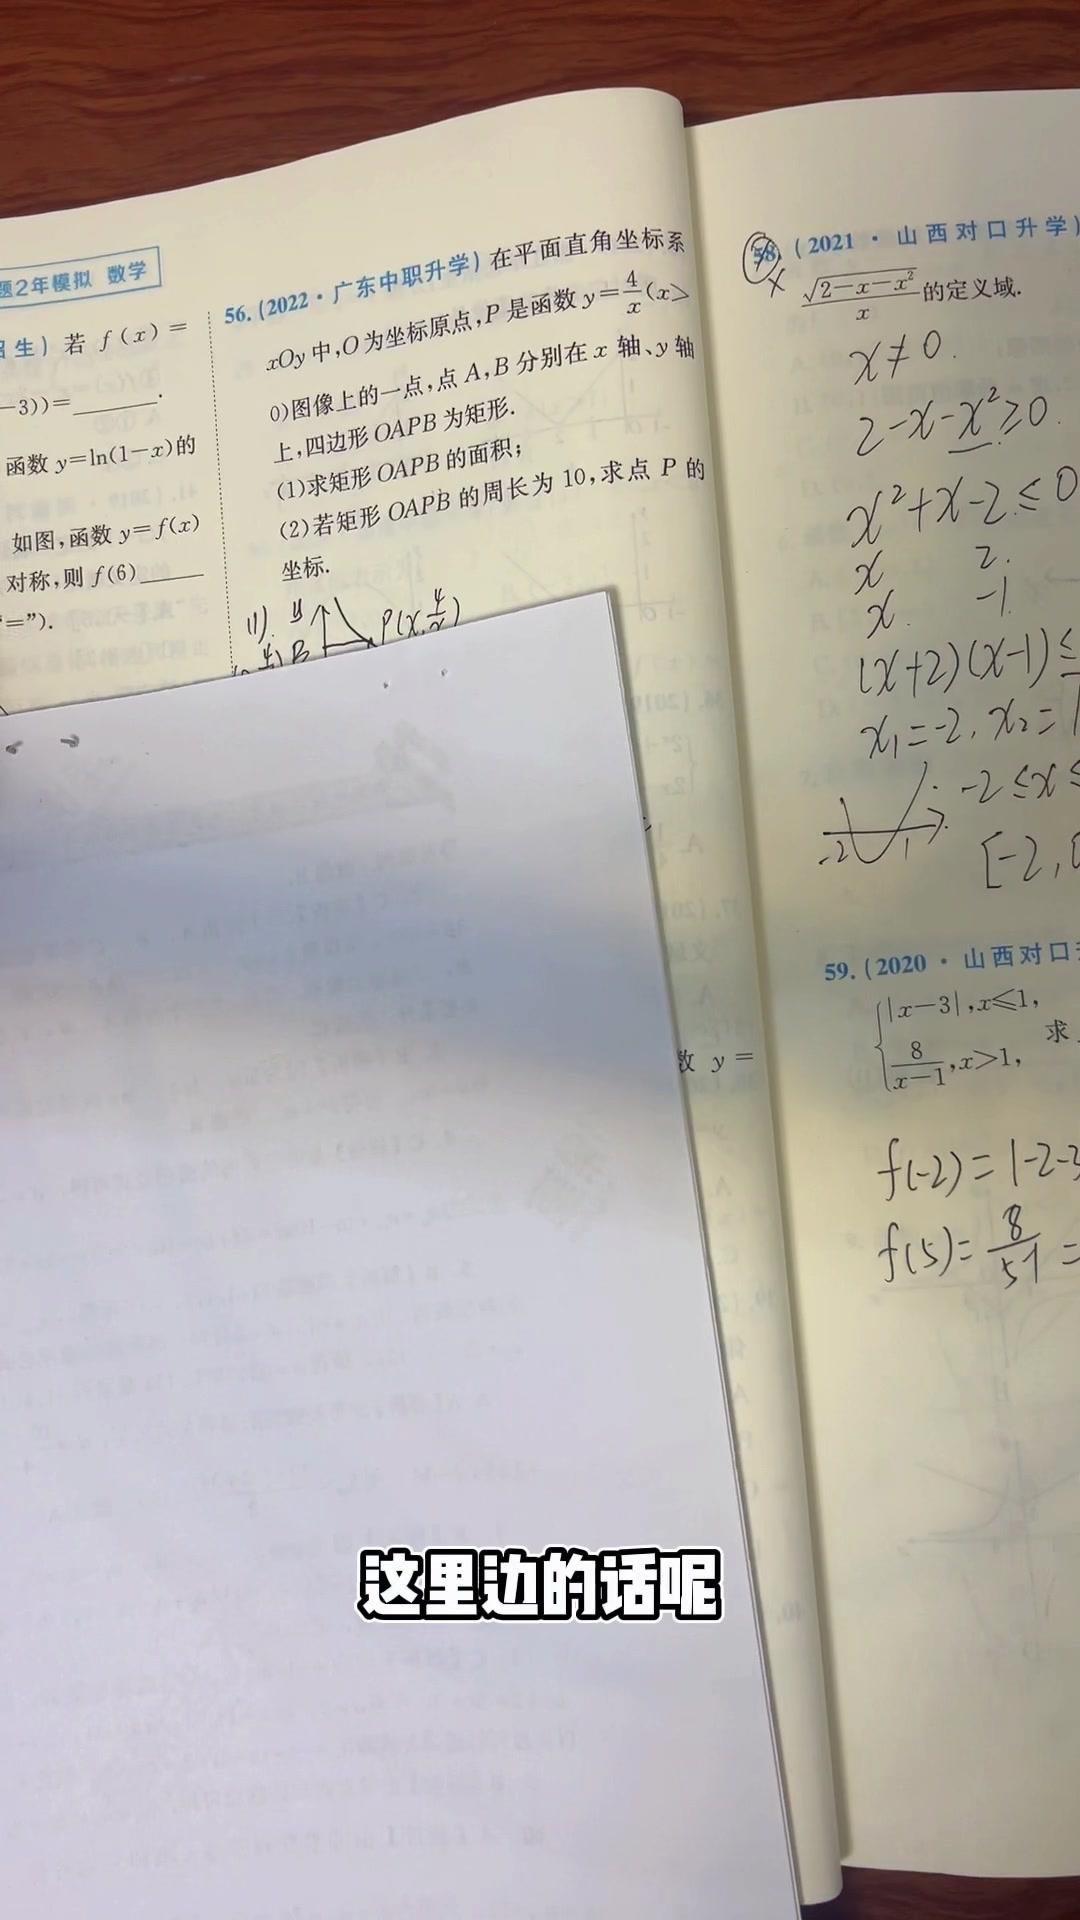 题2年模拟 数学
招生) 若 f(x)=
-3))=______.
函数 y=ln(1-x)的
如图,函数 y=f(x)
对称,则 f(6)______
"=").
56.(2022·广东中职升学)在平面直角坐标系
xOy 中,O为坐标原点,P 是函数 y=4/x(x>
0)图像上的一点,点 A,B 分别在 x 轴、y 轴
上,四边形 OAPB 为矩形.
(1)求矩形 OAPB 的面积;
(2)若矩形 OAPB 的周长为 10,求点 P 的
坐标.
(1). y P(x,4/x)
B
数 y=
58.(2021·山西对口升学)
√(2-x-x²)/x的定义域.
x≠0.
2-x-x²≥0.
x²+x-2≤0
x 2.
x. -1
(x+2)(x-1)≤
x₁=-2, x₂=1
-2≤x≤
-2 1
[-2,0
59.(2020·山西对口升
|x-3|,x≤1,
求
8/(x-1),x>1,
f(-2)=|-2-3
f(5)=8/5-1=
这里边的话呢